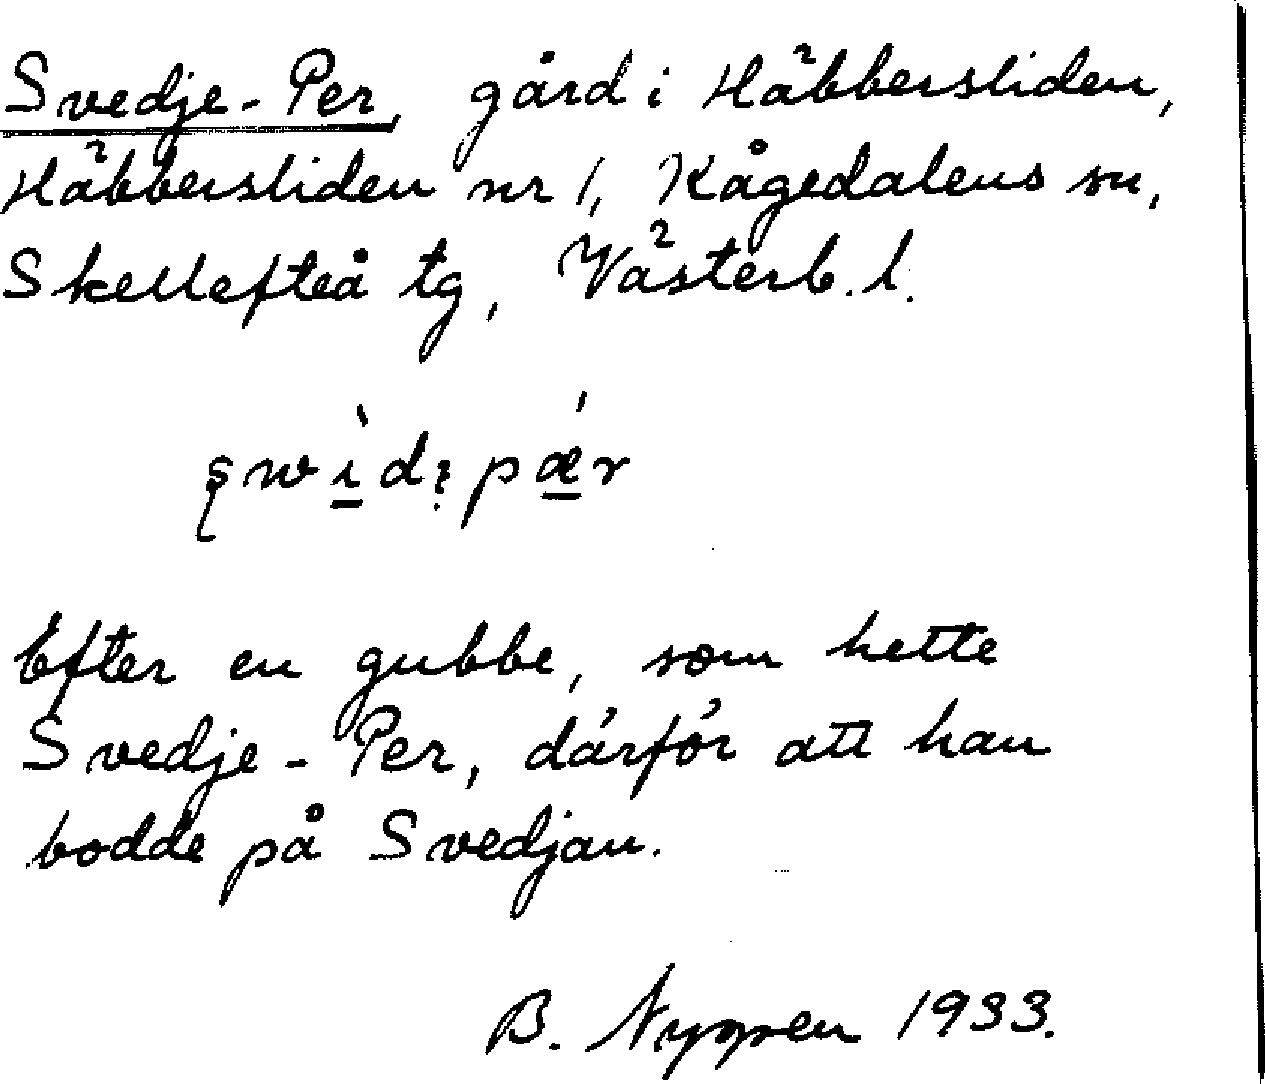 Svedje-Per, gård i Häbbersliden,
Häbbersliden nr 1, Kågedalens sn,
Skellefteå tg, Västerb. l.
Efter en gubbe, som hette
Svedje-Per, därför att han
bodde på Svedjan.
B. Nygren 1933.